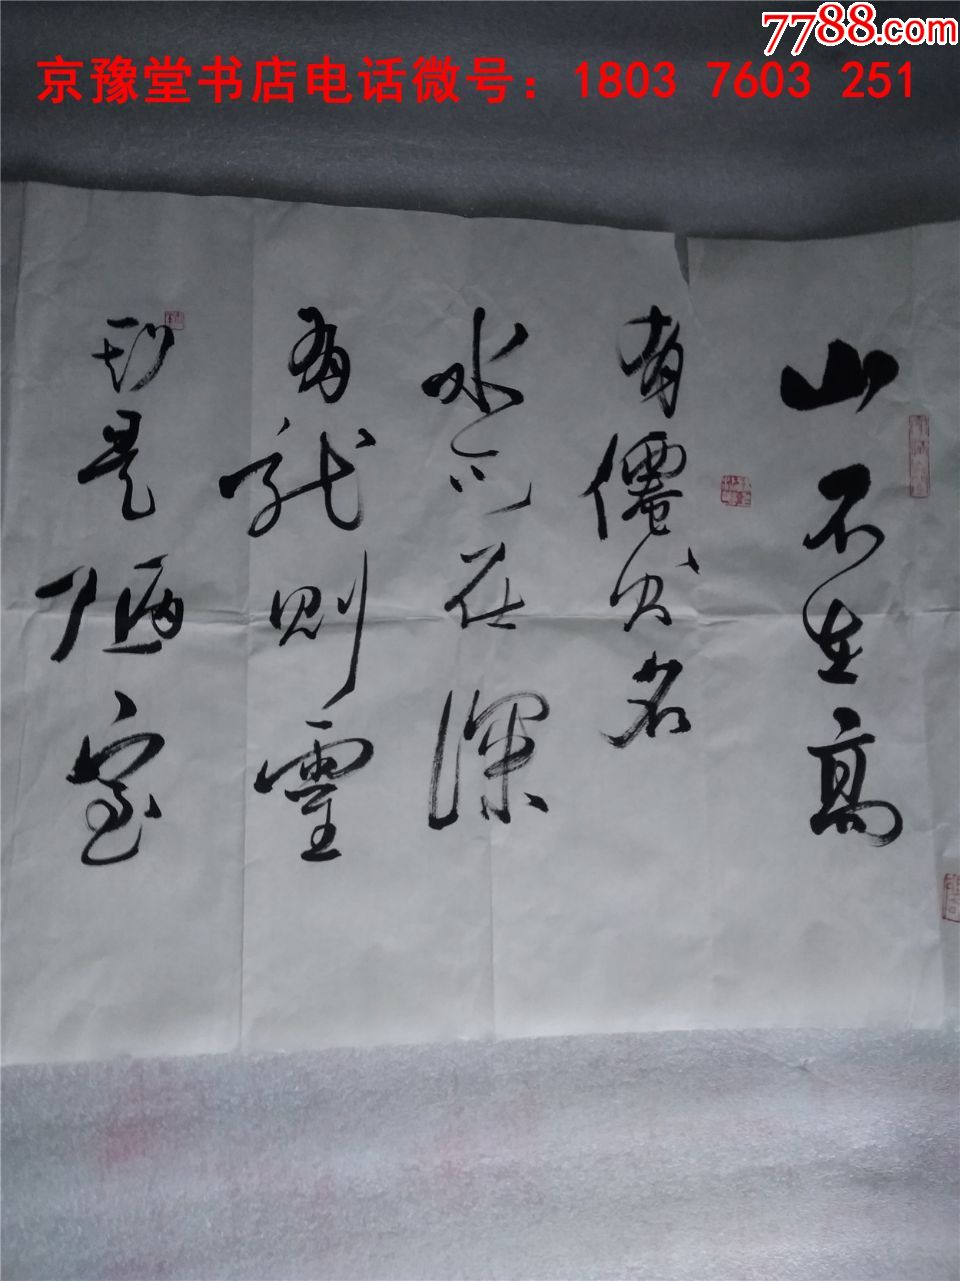 7788.com
京豫堂书店电话微号：1803 7603 251
山不在高
有僊則名
水不在深
有龍則靈
斯是陋室